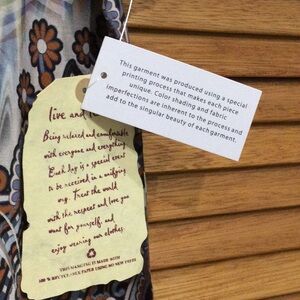 This garment was produced using a special
printing process that makes each piece
unique. Color shading and fabric
imperfections are inherent to the process and
add to the singular beauty of each garment.
live and
Being relaxed and comfortable
with everyone and everything
Each day is a special event
to be received in a unifying
way. Treat the world
with the respect and love you
want for yourself, and
enjoy wearing our clothes.
THIS HANGTAG IS MADE WITH
100 % RECYCLED PAPER USING NO NEW TREES